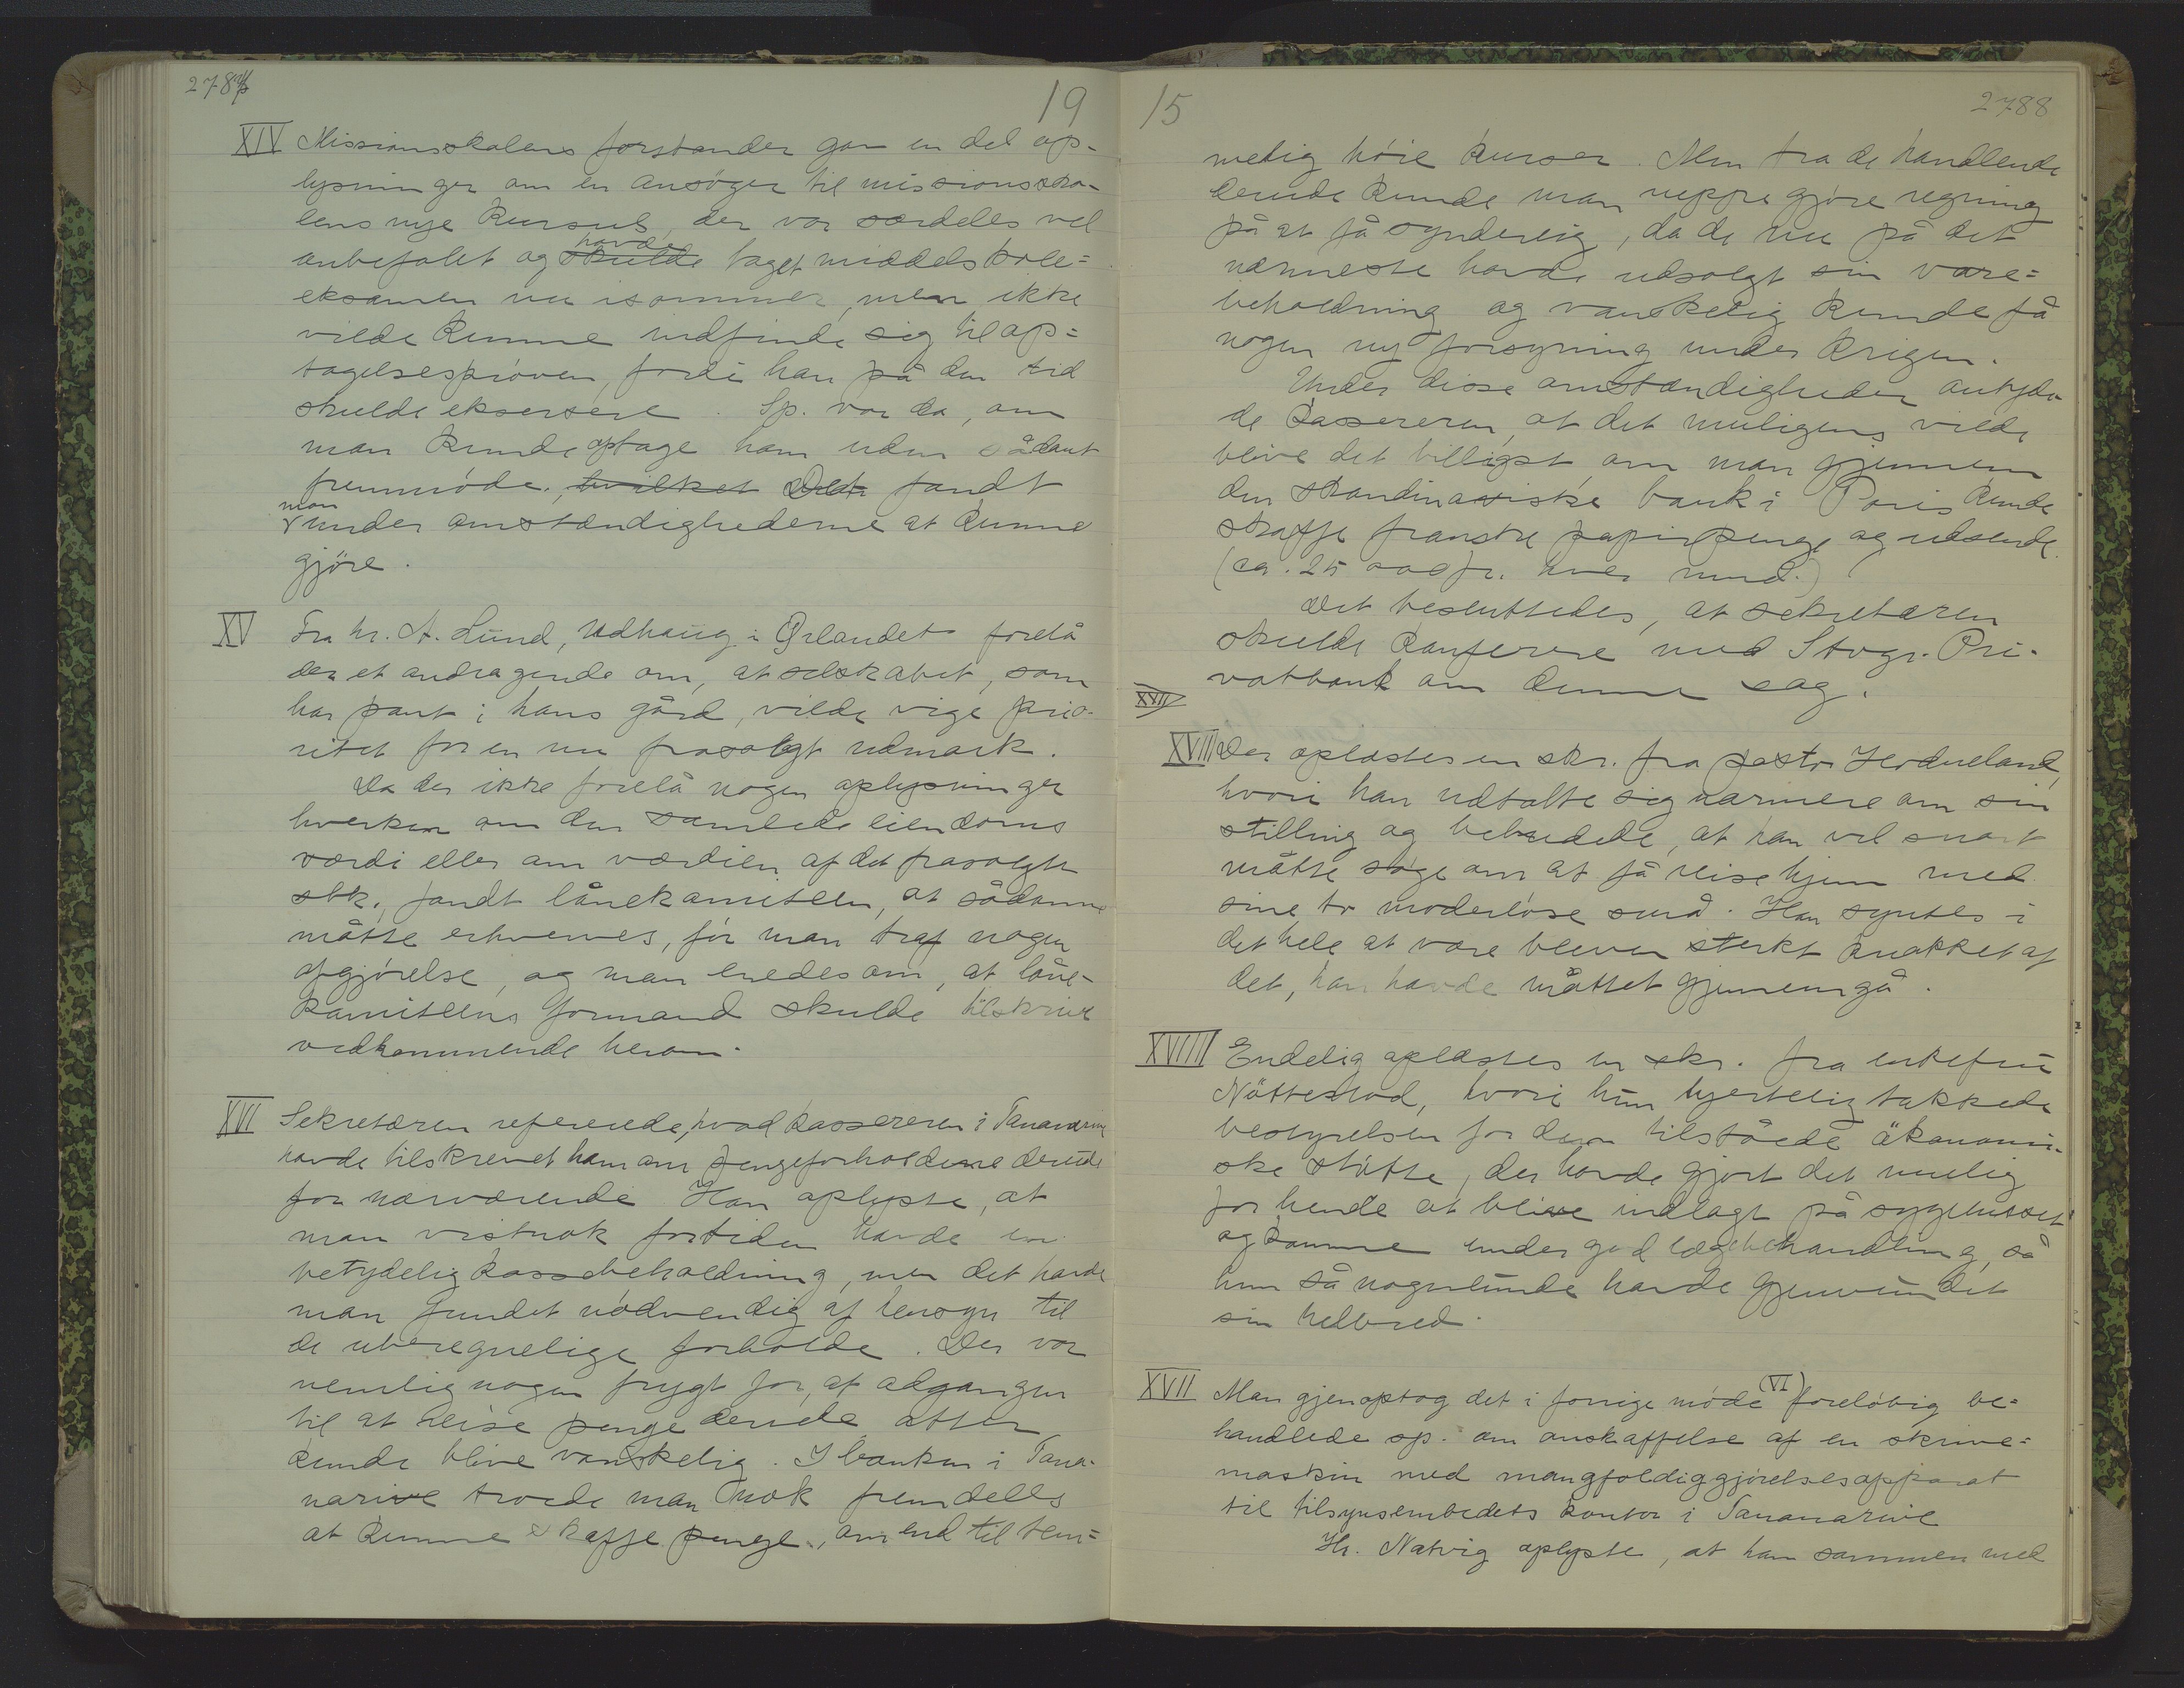 2787
19
XIV Missionsskolens forstander gav en del op-
lysninger om en ansöger til missionssko-
lens nye kursus, der var særdeles vel
anbefalet og skulde havde taget middelskole=
eksamen nu isommer, men ikke
vilde kunne indfinde sig til op=
tagelsesprøven, fordi han på den tid
skulde eksersere. Sp. var da, om
man kunde optage ham uden sådant
fremmøde, hvilket Dette fandt
man under omstændighederne at kunne
gjöre.
XV Fra hr. A. Lund, Udhaug i Ørlandet forelå
der et andragende om, at selskabet, som
har pant i hans gård, vilde vige prio-
ritet for en nu frasolgt udmark.
Da der ikke forelå nogen oplysninger
hverken om den samlede eiendoms
værdi eller om værdien af det frasolgte
stk., fandt lånekomiteen, at sådanne
måtte erhverves, før man traf nogen
afgjörelse, og man enedes om, at låne-
komiteens formand skulde tilskrive
vedkommende herom.
XVI Sekretæren refererede, hvad kassereren i Tananarive
havde tilskrevet ham om pengeforholdene derude
for nærværende. Han oplyste, at
man vistnok fortiden havde en
betydelig kassebeholdning, men det havde
man fundet nødvendig af hensyn til
de uberegnelige forholde. Der var
nemlig nogen frygt for, at adgangen
til at reise penge derude atter
kunde blive vanskelig. I banken i Tana-
narive troede man nok fremdeles
at kunne skaffe penge, om end til tem=
15
2788
melig høie kurser. Men fra de handlende
derude kunde man neppe gjøre regning
på at få synderlig, da de nu på det
nærmeste havde udsolgt sin vare=
beholdning og vanskelig kunde få
nogen ny forsyning under krigen.
Under disse omstændigheder antyde-
de kassereren, at det muligens vilde
blive det billigst, om man gjennem
den skandinaviske bank i Paris kunde
skaffe franske papirpenge og udsende.
(ca. 25 000 fr. hver mnd.)
Det besluttedes, at sekretæren
skulde konferere med Stvgr. Pri-
vatbank om denne sag.
XVII
XVIII Der oplæstes en skr. fra pastor Hodneland,
hvori han udtalte sig nærmere om sin
stilling og bebudede, at han vel snart
måtte söge om at få reise hjem med
sine to moderløse små. Han syntes i
det hele at være bleven sterkt knækket af
det, han havde måttet gjennemgå.
XVIIII Endelig oplæstes en skr. fra enkefru
Nöttestad, hvori hun hjertelig takkede
bestyrelsen for den tilståede økonomi-
ske støtte, der havde gjort det mulig
for hende at blive indlagt på sygehuset
og komme under god lægebehandling, så
hun så nogenlunde havde gjenvundet
sin helbred.
XVII Man gjenoptog det i forrige møde (VI) foreløbig be=
handlede sp. om anskaffelse af en skrive=
maskin med mangfoldiggjørelsesapparat
til tilsynsembedets kontor i Tananarive
Hr. Natvig oplyste, at han sammen med